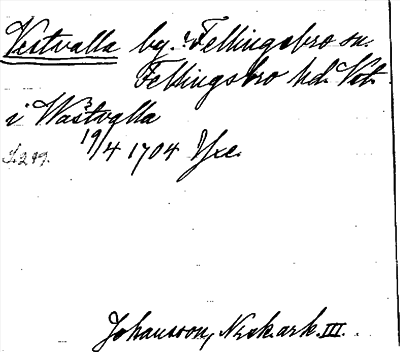 Vestvalla by. i Fellingsbro sn.
Fellingsbro hd. Vstm.
i Wästvalla
19/4 1704
S. 299.
Johansson, Norsk. ark. III.